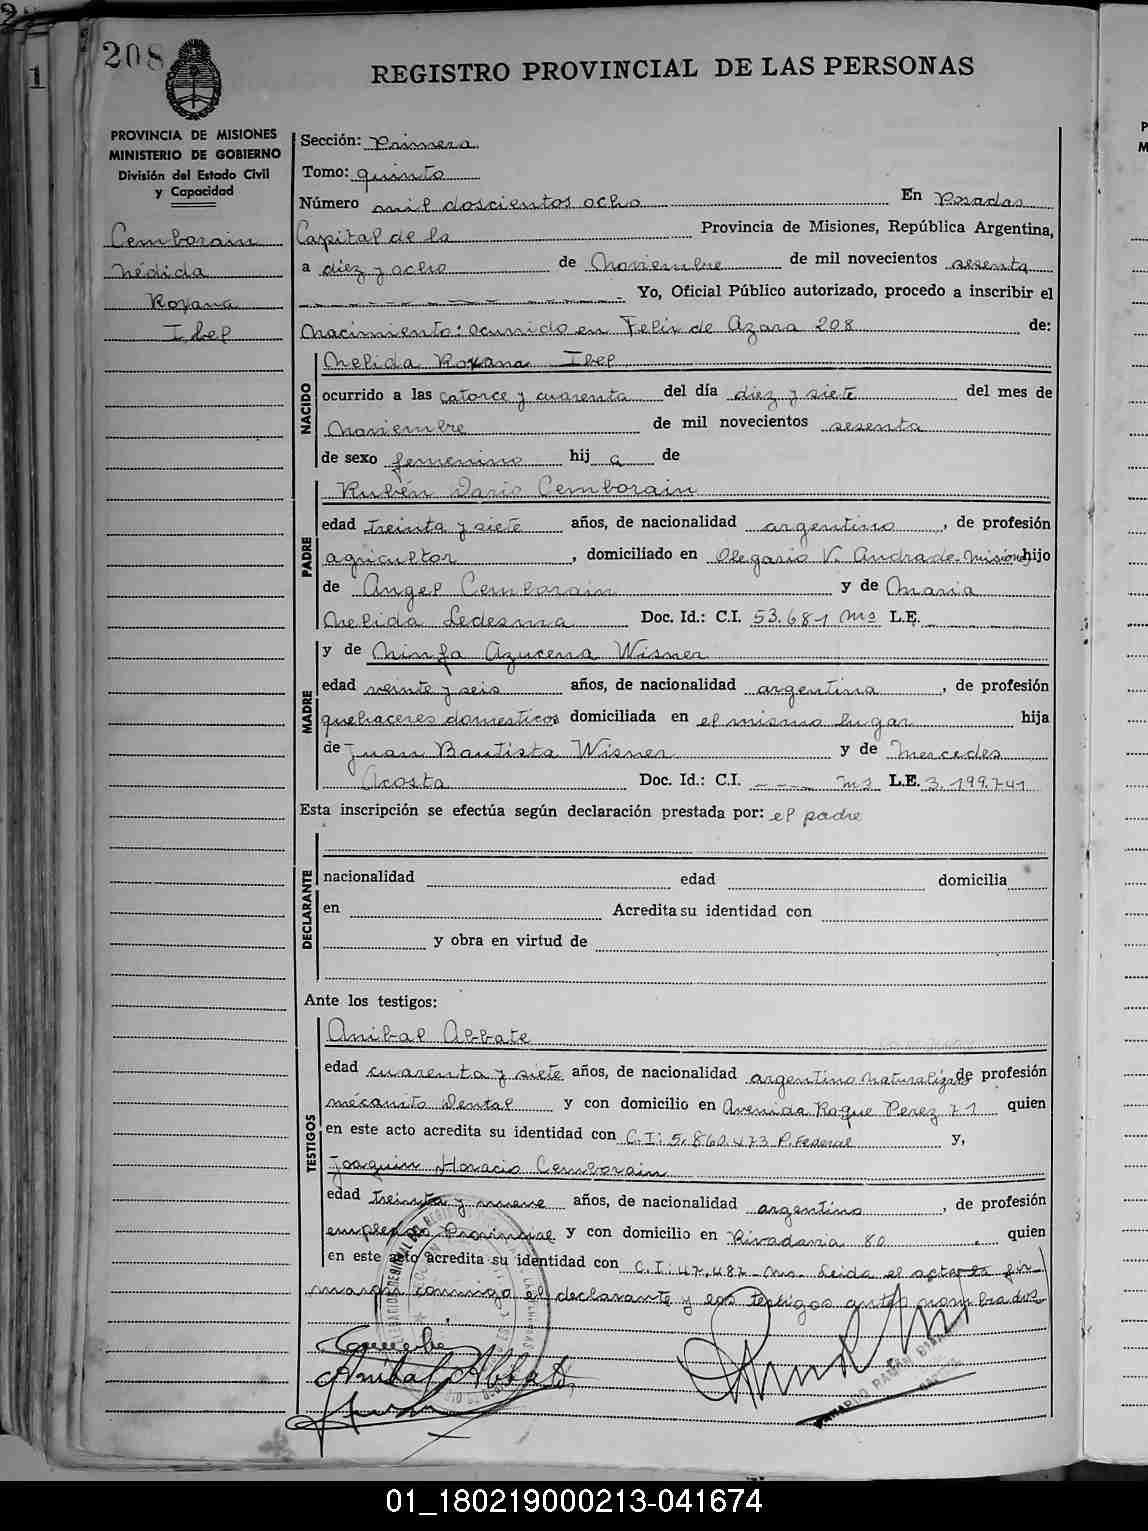 208
REGISTRO PROVINCIAL DE LAS PERSONAS
PROVINCIA DE MISIONES
MINISTERIO DE GOBIERNO
División del Estado Civil
y Capacidad
Cemborain
Nélida
Roxana
Ibel
Sección: Primera
Tomo: quinto
Número mil doscientos ocho En Posadas
Capital de la Provincia de Misiones, República Argentina,
a diez y ocho de Noviembre de mil novecientos sesenta
Yo, Oficial Público autorizado, procedo a inscribir el
Nacimiento: ocurrido en Felix de Azara 208 de:
NACIDO
Nelida Roxana Ibel
ocurrido a las catorce y cuarenta del día diez y siete del mes de
Noviembre de mil novecientos sesenta
de sexo femenino hij a de
PADRE
Rubén Dario Cemborain
edad treinta y siete años, de nacionalidad argentino, de profesión
agricultor, domiciliado en Olegario V. Andrade. Misiones hijo
de Angel Cemborain y de Maria
Nelida Ledesma Doc. Id.: C.I. 53.681 Ms L.E.
MADRE
y de Ninfa Azucena Wisner
edad veinte y seis años, de nacionalidad argentina, de profesión
quehaceres domesticos domiciliada en el mismo lugar hija
de Juan Bautista Wisner y de Mercedes
Acosta Doc. Id.: C.I. ---- Ms L.E. 3.199.741
Esta inscripción se efectúa según declaración prestada por: el padre
DECLARANTE
nacionalidad edad domicilia
en Acredita su identidad con
y obra en virtud de
Ante los testigos:
TESTIGOS
Anibal Abbate
edad cuarenta y siete años, de nacionalidad argentino naturalizado de profesión
mécanico Dental y con domicilio en Avenida Roque Perez 71 quien
en este acto acredita su identidad con C.I: 5.860.473 P. Federal y,
Joaquin Horacio Cemborain
edad treinta y nueve años, de nacionalidad argentino, de profesión
empleado Provincial y con domicilio en Rivadavia 80, quien
en este acto acredita su identidad con C.I: 47,487 Ms. Leida el acta la fir-
man conmigo el declarante y los testigos antes nombrados
Anibal Abbate
01_180219000213-041674